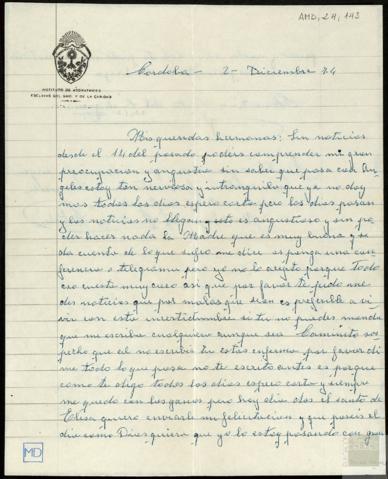 AMD, 24, 143
INSTITUTO DE ADORATRICES
ESCLAVAS DEL SMO. Y DE LA CARIDAD
Cordoba - 2 - Diciembre 74
Mis queridas hermanas: Sin noticias
desde el 14 del pasado podeis comprender mi gran
preocupacion y angustia sin saber que pasa con An
geles estoy tan nerviosa y intranquila que ya no doy
mas todos los dias espero carta pero los dias pasan
y las noticias no llegan y esto es angustioso y sin po
der hacer nada la Madre que es muy buena y se
da cuenta de lo que sufro me dice os ponga una con
ferencia o telegrama pero yo no lo acepto porque todo
eso cuesta muy caro asi que por favor te pido me
des noticias que por malas que sean es preferible a vi
vir con esta intertidumbre si tu no puedes manda
que me escriba cualquiera aunque sea Caminito sos
pecho que el no escribir tu estas enferma por favor di
me todo lo que pasa no te escribi antes es porque
como te digo todos los dias espero carta y siempre
me quedo con las ganas pero hoy dia dos el santo de
Elisa quiero enviarle mi felicitacion y que paseis el
dia como Dios quiera que yo lo estoy pasando con gran
MD